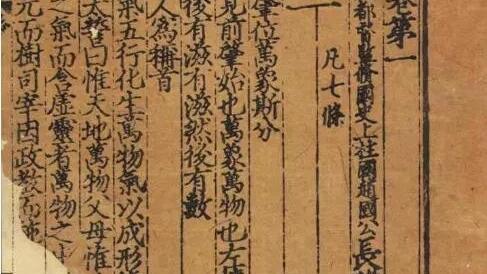 卷第一
都督監修國史上柱國趙國公長
一 凡七條
肇位萬象斯分
見前肇始也萬象萬物也左
後有滋有滋然後有數
人爲稱首
氣五行化生萬物氣以成形
太誓曰惟天地萬物父母惟
之氣而含虛靈者萬物之
元而樹司宰因政教而